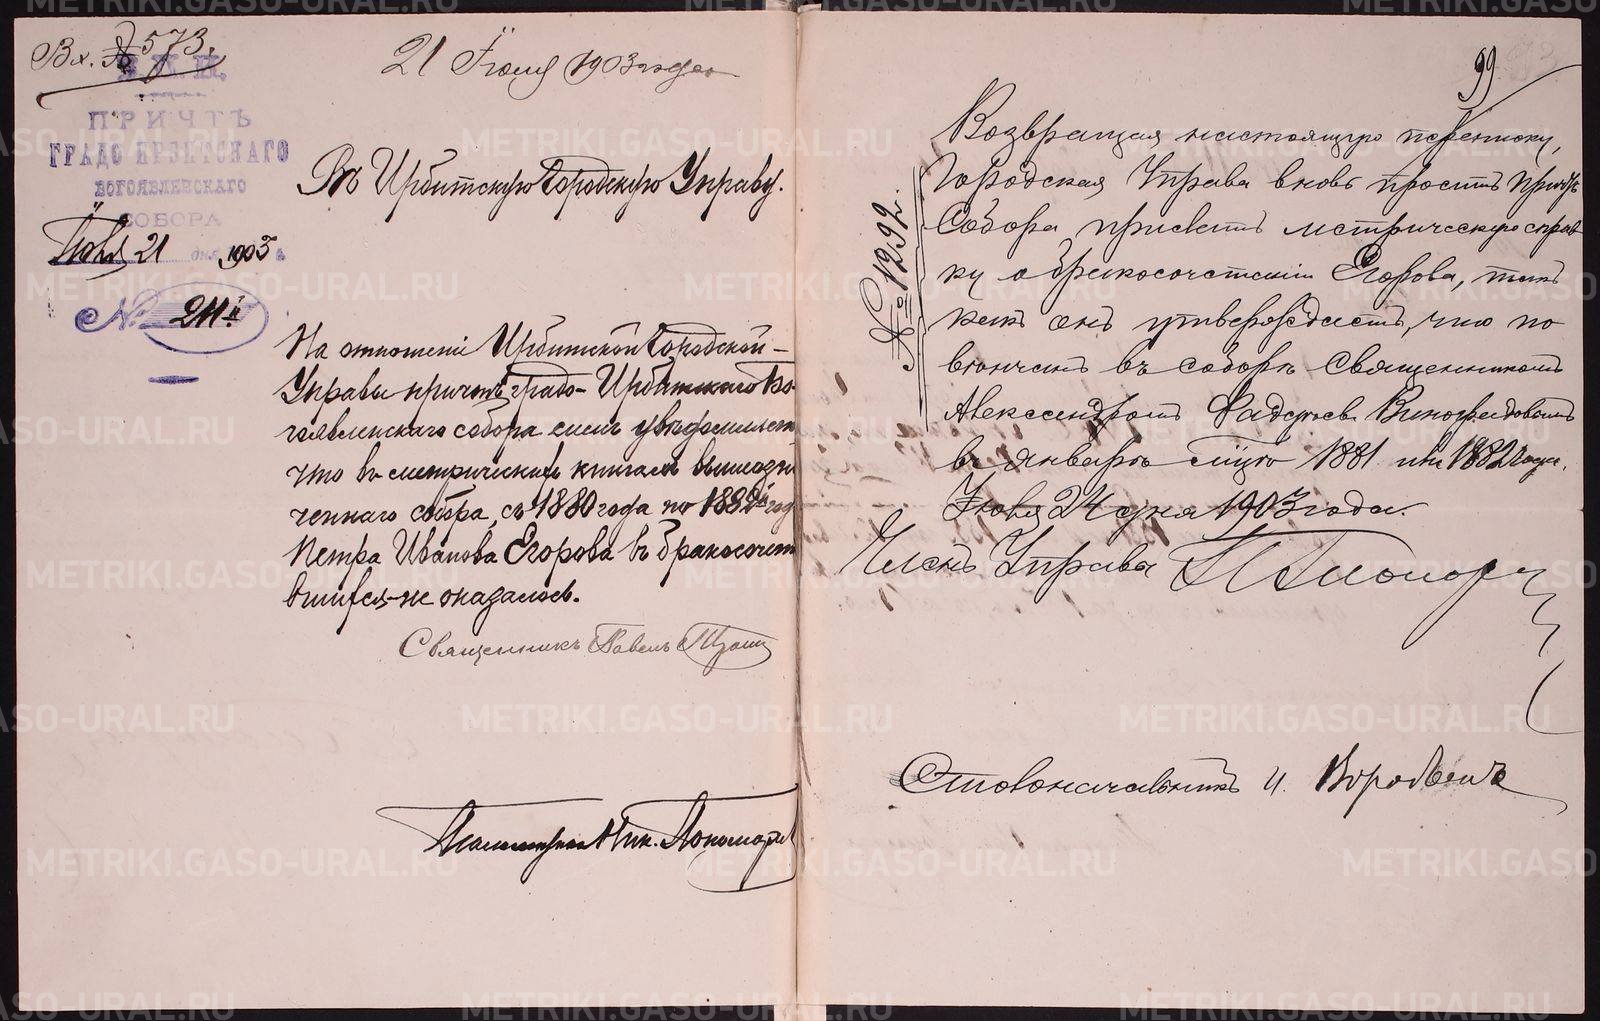 Вх. № 573.
21 Іюня 1903 года
В. П. И.
ПРИЧТЪ
ГРАДО ИРБИТСКАГО
БОГОЯВЛЕНСКАГО
СОБОРА
Іюня 21 дня 1903 г.
№ 211
Въ Ирбитскую Городскую Управу.
На отношеніе Ирбитской Городской
Управы причтъ градо-Ирбитскаго Бо-
гоявленскаго собора симъ увѣдомляетъ
что въ метрическихъ книгахъ вышеозна
ченнаго собора, съ 1880 года по 1882й годъ
Петра Иванова Егорова въ бракосочета
вшихся не оказалось.
Священникъ Павелъ
Псаломщикъ Ник. Пономаре
99
Возвращая настоящую переписку,
Городская Управа вновь проситъ Причтъ
Собора привести метрическую справ
ку о бракосочетаніи Егорова, такъ
какъ онъ утверждаетъ, что по
вѣнчанъ въ соборѣ Священникомъ
Александромъ Фадеевымъ Виноградовымъ
въ январѣ мѣсяцѣ 1881 или 1882 года.
Іюня 24 дня 1903 года.
№ 1292.
Членъ Управы
Столоначальникъ И. Воробьевъ
METRIKI.GASO-URAL.RU